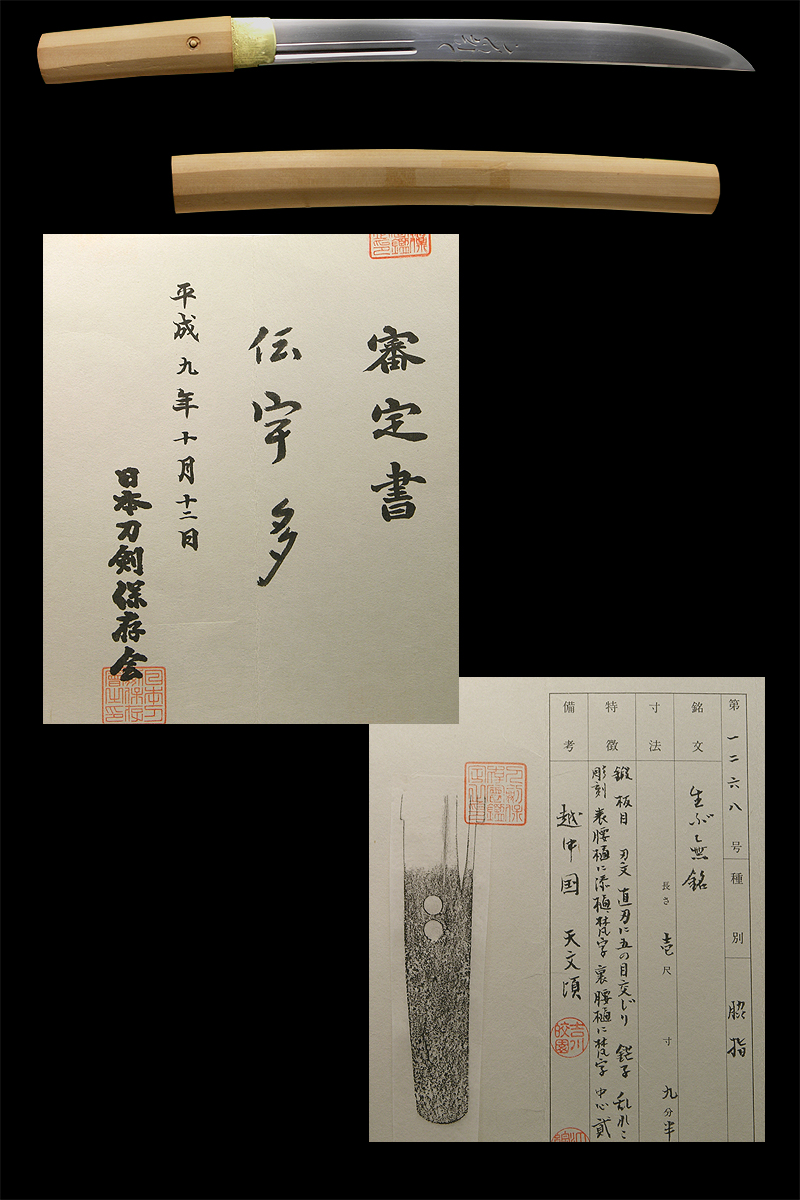 審定書
伝宇多
平成九年十月十二日
日本刀剣保存会
第一二六八号 種別 脇指
銘文 生ぶ無銘
寸法 長さ 壱尺 寸九分半
特徴 鍛 板目 刃文 直刃に五の目交じり 鋩子 乱れこ
彫刻 表腰樋に添樋、梵字 裏腰樋に梵字 中心 貳
備考 越中国 天文頃
吉川皎園